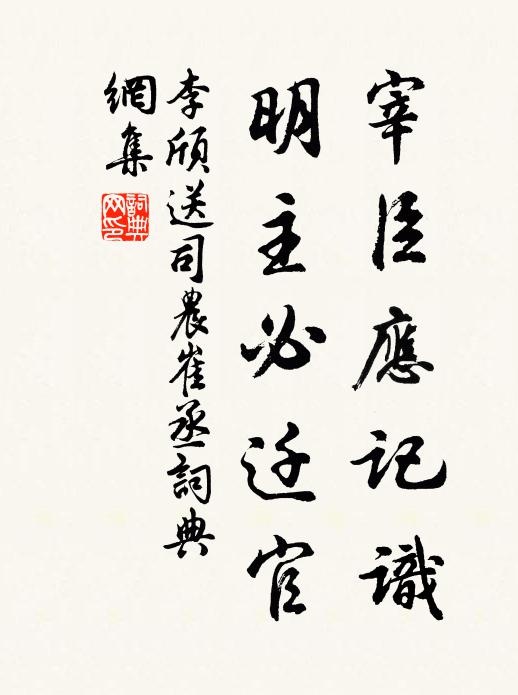 宰臣應記識
明主必迁官
李頎送司農崔丞詞典
網集
詞典
网印